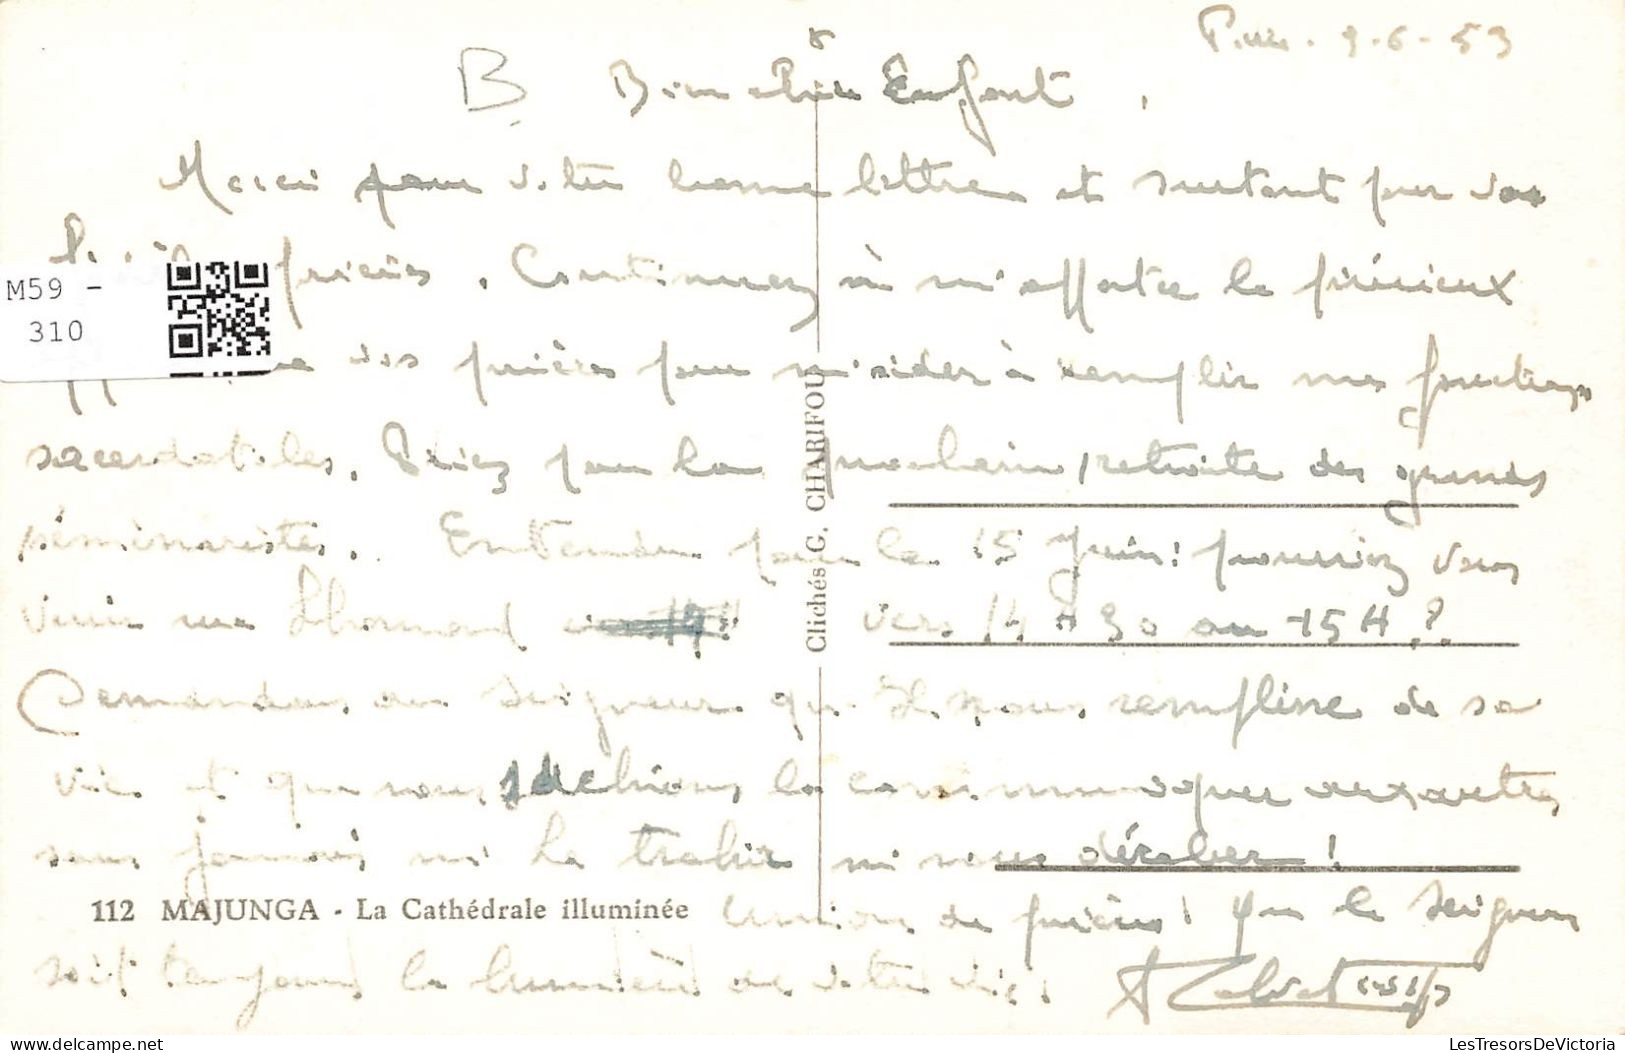 Paris. 9-6-53
B Bien chère Enfant,
Merci pour votre bonne lettre et surtout pour vos
prières. Continuez à m'apporter le précieux
M59 -
310
des prières pour m'aider à remplir mes fonctions
sacerdotales. Priez pour la prochaine retraite des grands
séminaristes. Entendu pour le 15 Juin: pourriez vous
venir rue Lhomond vers 14 H 30 ou 15 H ?
Demandons au Seigneur qu'Il nous remplisse de sa
vie et que nous sachions la communiquer aux autres
sans jamais ni la trahir ni nous dérober !
112 MAJUNGA - La Cathédrale illuminée
Union de prières ! Que le Seigneur
soit toujours la lumière de votre vie.
Clichés G. CHARIFOU
LesTresorsDeVictoria